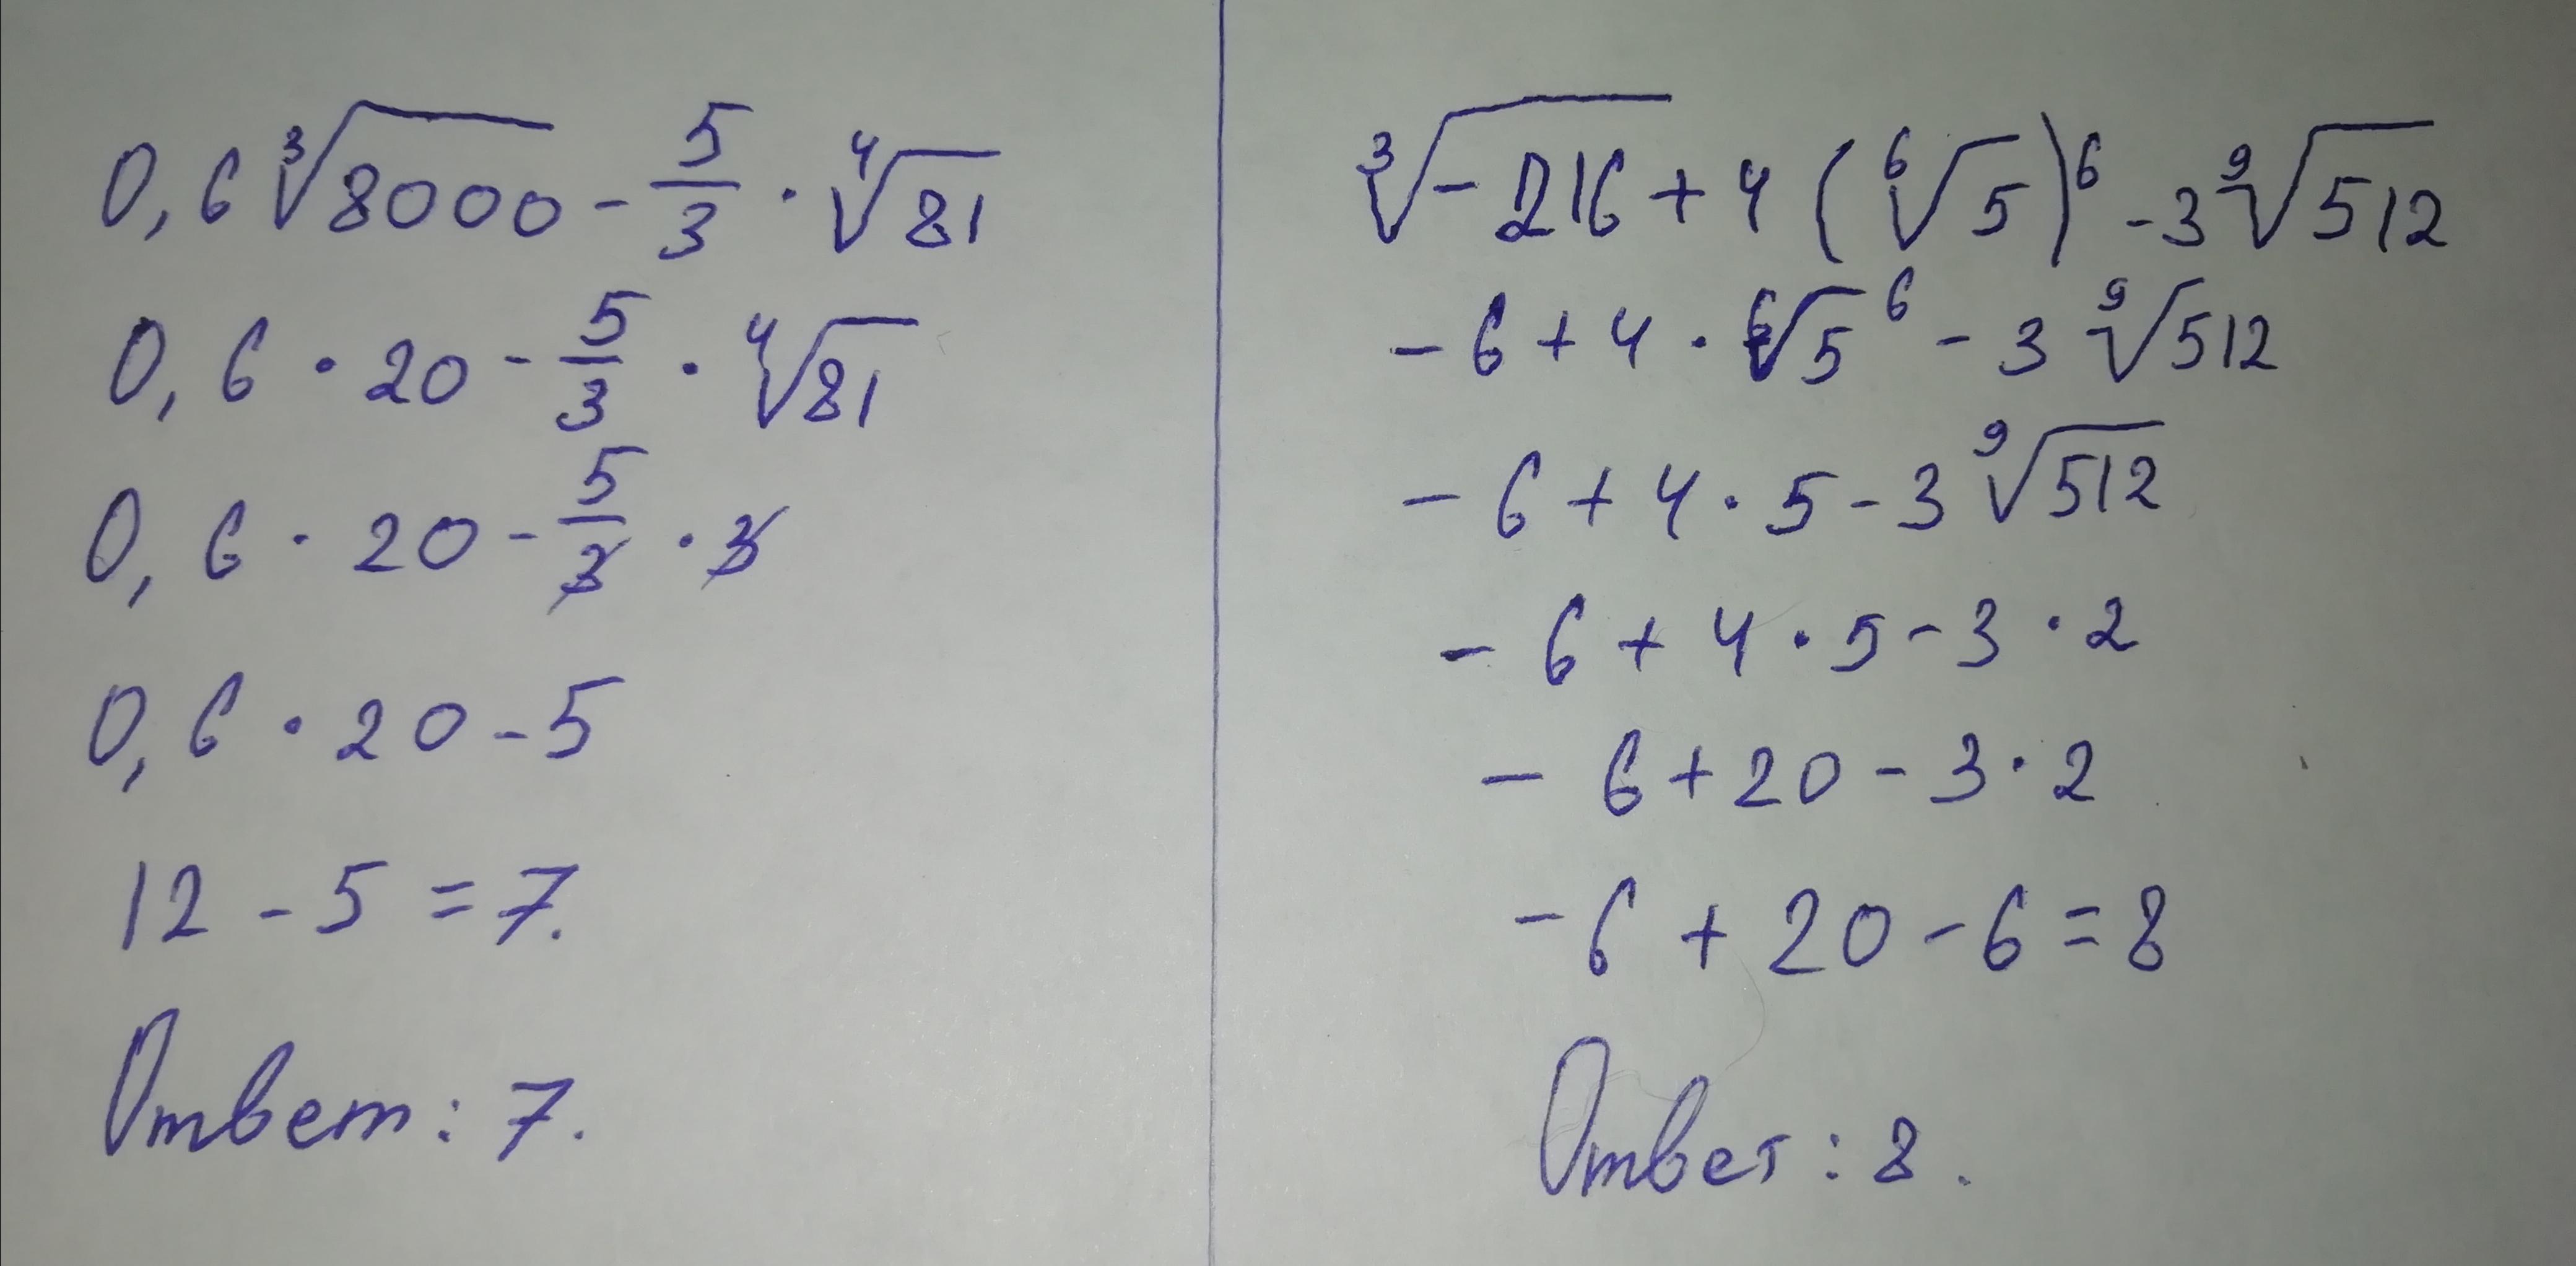 0,6∛8000 - 5/3 · ∜81
0,6 · 20 - 5/3 · ∜81
0,6 · 20 - 5/3 · 3
0,6 · 20 - 5
12 - 5 = 7.
Ответ: 7.
∛-216 + 4(⁶√5)⁶ - 3⁹√512
- 6 + 4 · ⁶√5⁶ - 3 ⁹√512
- 6 + 4 · 5 - 3 ⁹√512
- 6 + 4 · 5 - 3 · 2
- 6 + 20 - 3 · 2
- 6 + 20 - 6 = 8
Ответ: 8.